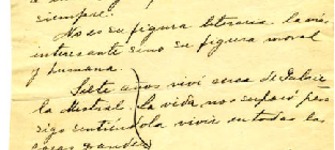 siempre.
No es su figura literaria la más
interesante sino su figura moral
y humana.
Siete años viví cerca de Gabrie
la Mistral. La vida nos separó pero
sigo sintiéndola vivir en todas las
cosas grandes